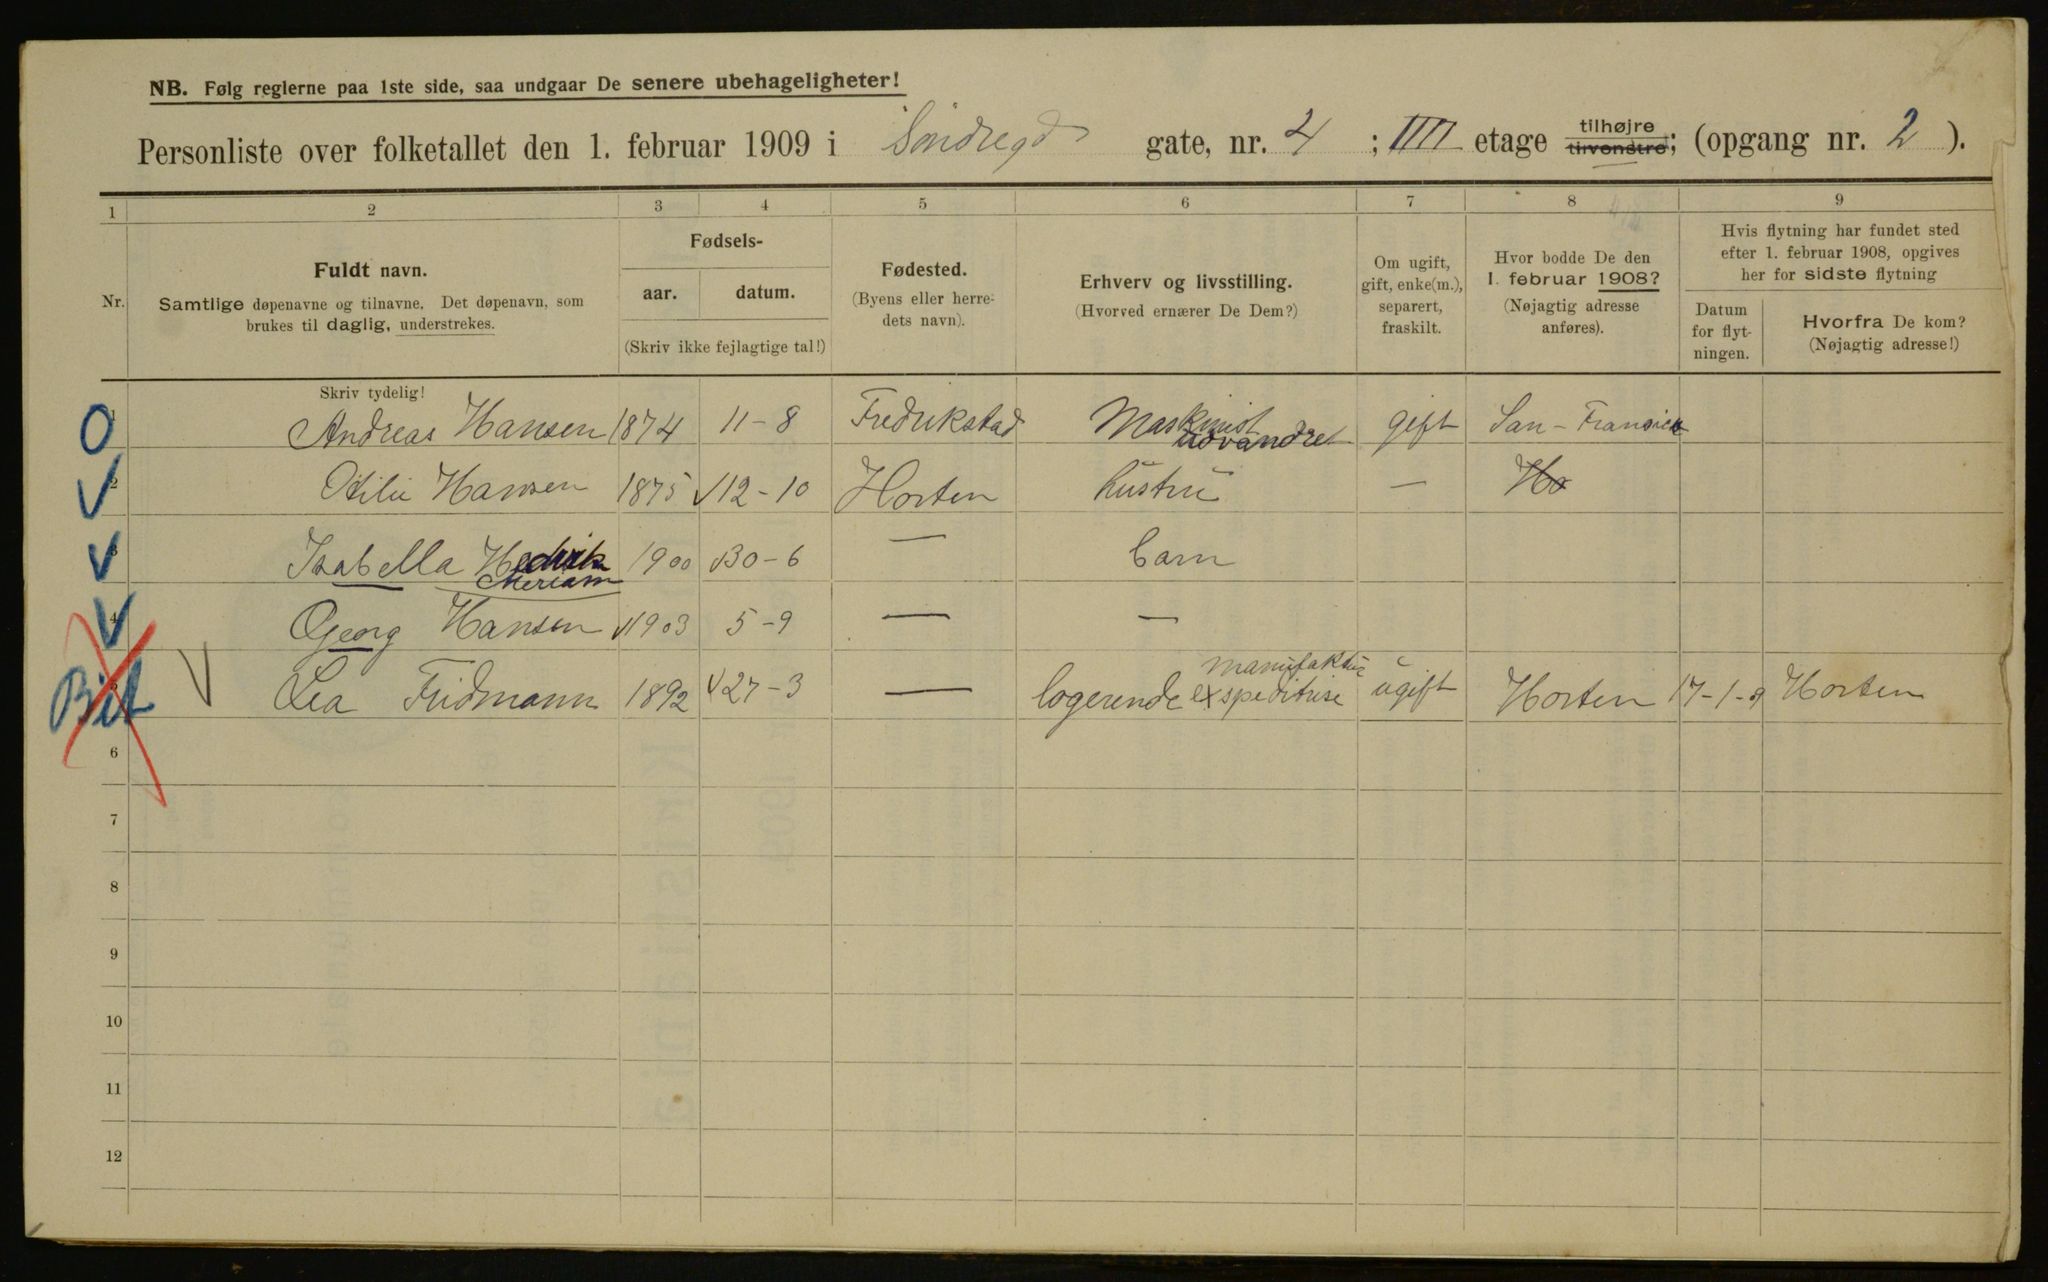 NB. Følg reglerne paa 1ste side, saa undgaar De senere ubehageligheter!
Personliste over folketallet den 1. februar 1909 i Søndregd gate, nr. 4 ; IIII etage tilhøjre tilvenstre; (opgang nr. 2 ).
1 2 3 4 5 6 7 8 9
Nr.
Fuldt navn.
Samtlige døpenavne og tilnavne. Det døpenavn, som
brukes til daglig, understrekes.
Skriv tydelig!
Fødsels-
aar. datum.
(Skriv ikke fejlagtige tal!)
Fødested.
(Byens eller herre-
dets navn).
Erhverv og livsstilling.
(Hvorved ernærer De Dem?)
Om ugift,
gift, enke(m.),
separert,
fraskilt.
Hvor bodde De den
1. februar 1908?
(Nøjagtig adresse
anføres).
Hvis flytning har fundet sted
efter 1. februar 1908, opgives
her for sidste flytning
Datum
for flyt-
ningen.
Hvorfra De kom?
(Nøjagtig adresse!)
1 Andreas Hansen 1874 11-8 Fredrikstad Maskinist gift San-Fransico
udvandret
2 Otilie Hansen 1875 12-10 Horten hustru — Ho
3 Isabella Hedvik 1900 30-6 — barn
Meriam
4 Georg Hansen 1903 5-9 — —
manufaktur
Bit 5 Lea Fridmann 1892 27-3 — logerende expeditrise ugift Horten 17-1-9 Horten
6
7
8
9
10
11
12